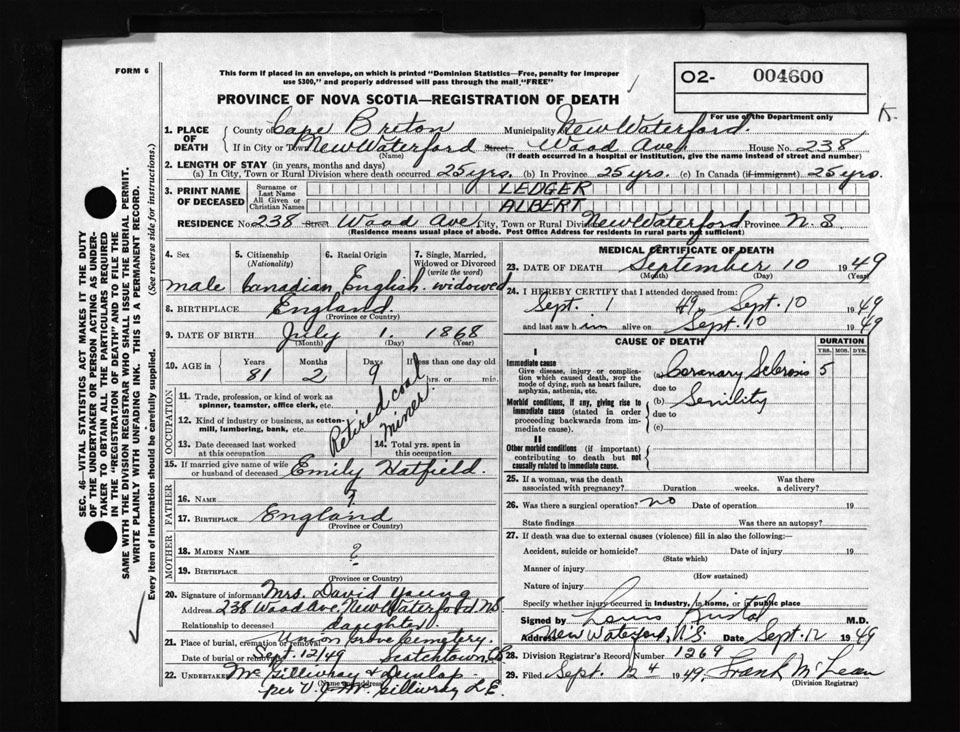 FORM 6
This form if placed in an envelope, on which is printed "Dominion Statistics—Free, penalty for improper
use $300," and properly addressed will pass through the mail "FREE"
O2- 004600
PROVINCE OF NOVA SCOTIA—REGISTRATION OF DEATH
For use of the Department only
K.
1. PLACE OF DEATH
County of Cape Briton Municipality New Waterford.
If in City or Town New Waterford Street Wood Ave. House No. 238
(Name) (If death occurred in a hospital or institution, give the name instead of street and number)
2. LENGTH OF STAY (in years, months and days)
(a) In City, Town or Rural Division where death occurred 25 yrs. (b) In Province 25 yrs. (c) In Canada (if immigrant) 25 yrs.
3. PRINT NAME OF DECEASED
Surname or Last Name LEDGER
All Given or Christian Names ALBERT
RESIDENCE No. 238 Street Wood Ave City, Town or Rural Division New Waterford Province N.S.
(Residence means usual place of abode. Post Office Address for residents in rural parts not sufficient)
4. Sex
5. Citizenship (Nationality)
6. Racial Origin
7. Single, Married, Widowed or Divorced (write the word)
male Canadian English. widowed
8. BIRTHPLACE England.
(Province or Country)
9. DATE OF BIRTH July 1. 1868
(Month) (Day) (Year)
10. AGE in Years Months Days If less than one day old
81 2 9 hrs. or min.
OCCUPATION
11. Trade, profession, or kind of work as spinner, teamster, office clerk, etc.
12. Kind of industry or business, as cotton-mill, lumbering, bank, etc.
Retired coal miner.
13. Date deceased last worked at this occupation
14. Total yrs. spent in this occupation
15. If married give name of wife or husband of deceased Emily Hatfield.
FATHER
16. NAME ?
17. BIRTHPLACE England
(Province or Country)
MOTHER
18. MAIDEN NAME ?
19. BIRTHPLACE
(Province or Country)
20. Signature of informant Mrs. David Young
Address 238 Wood Ave, New Waterford NS
Relationship to deceased daughter.
21. Place of burial, cremation or removal Union Grove Cemetery.
Date of burial or removal Sept. 12/49 Scotchtown CB
22. UNDERTAKER McGillivray & Dunlap.
(Name and address)
per McGillivray L.E.
MEDICAL CERTIFICATE OF DEATH
23. DATE OF DEATH September 10 1949
(Month) (Day) (Year)
24. I HEREBY CERTIFY that I attended deceased from:
Sept. 1 49, Sept. 10 1949
and last saw him alive on Sept. 10 1949
CAUSE OF DEATH
DURATION
YRS. MOS. DYS.
I
Immediate cause
Give disease, injury or complication which caused death, NOT the mode of dying, such as heart failure, asphyxia, asthenia, etc.
(a) Coranary Sclerosis 5
due to
Morbid conditions, if any, giving rise to immediate cause (stated in order proceeding backwards from immediate cause).
(b) Senility
due to
(c)
II
Other morbid conditions (if important) contributing to death but not causally related to immediate cause.
25. If a woman, was the death associated with pregnancy? Duration weeks. Was there a delivery?
26. Was there a surgical operation? no Date of operation 19
State findings Was there an autopsy?
27. If death was due to external causes (violence) fill in also the following:—
Accident, suicide or homicide? Date of injury 19
(State which)
Manner of injury
(How sustained)
Nature of injury
Specify whether injury occurred in Industry, in home, or in public place
Signed by Louis M.D.
Address New Waterford, N.S. Date Sept. 12 1949
28. Division Registrar's Record Number 1269
29. Filed Sept. 1949, Frank McLean
(Division Registrar)
SEC. 46—VITAL STATISTICS ACT MAKES IT THE DUTY
OF THE UNDERTAKER OR PERSON ACTING AS UNDER-
TAKER TO OBTAIN ALL THE PARTICULARS REQUIRED
IN THE "REGISTRATION OF DEATH" AND TO FILE THE
SAME WITH THE DIVISION REGISTRAR WHO SHALL ISSUE THE BURIAL PERMIT.
WRITE PLAINLY WITH UNFADING INK. THIS IS A PERMANENT RECORD.
Every item of information should be carefully supplied. (See reverse side for instructions.)